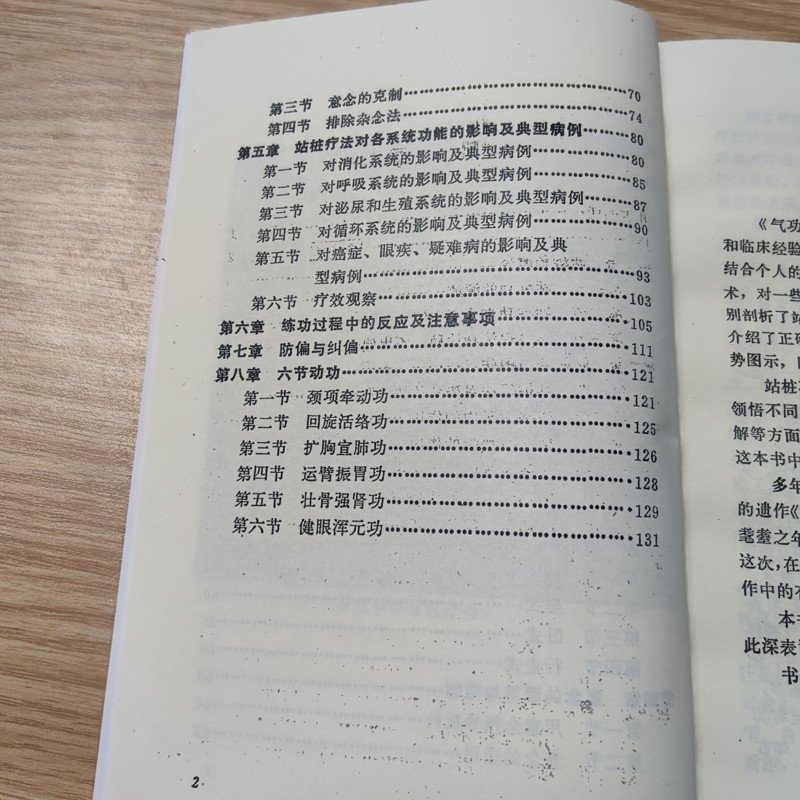 第三节 意念的克制……70
第四节 排除杂念法……74
第五章 站桩疗法对各系统功能的影响及典型病例……80
第一节 对消化系统的影响及典型病例……80
第二节 对呼吸系统的影响及典型病例……85
第三节 对泌尿和生殖系统的影响及典型病例……87
第四节 对循环系统的影响及典型病例……90
第五节 对癌症、眼疾、疑难病的影响及典
型病例……93
第六节 疗效观察……103
第六章 练功过程中的反应及注意事项……105
第七章 防偏与纠偏……111
第八章 六节动功……121
第一节 颈项牵动功……121
第二节 回旋活络功……125
第三节 扩胸宣肺功……126
第四节 运臂振胃功……128
第五节 壮骨强肾功……129
第六节 健眼浑元功……131
2
《气功
和临床经验
结合个人的
术，对一些
别剖析了站
介绍了正确
势图示，
站桩
领悟不同
解等方面
这本书中
多年
的遗作《
耄耋之年
这次，在
作中的
本书
此深表
书